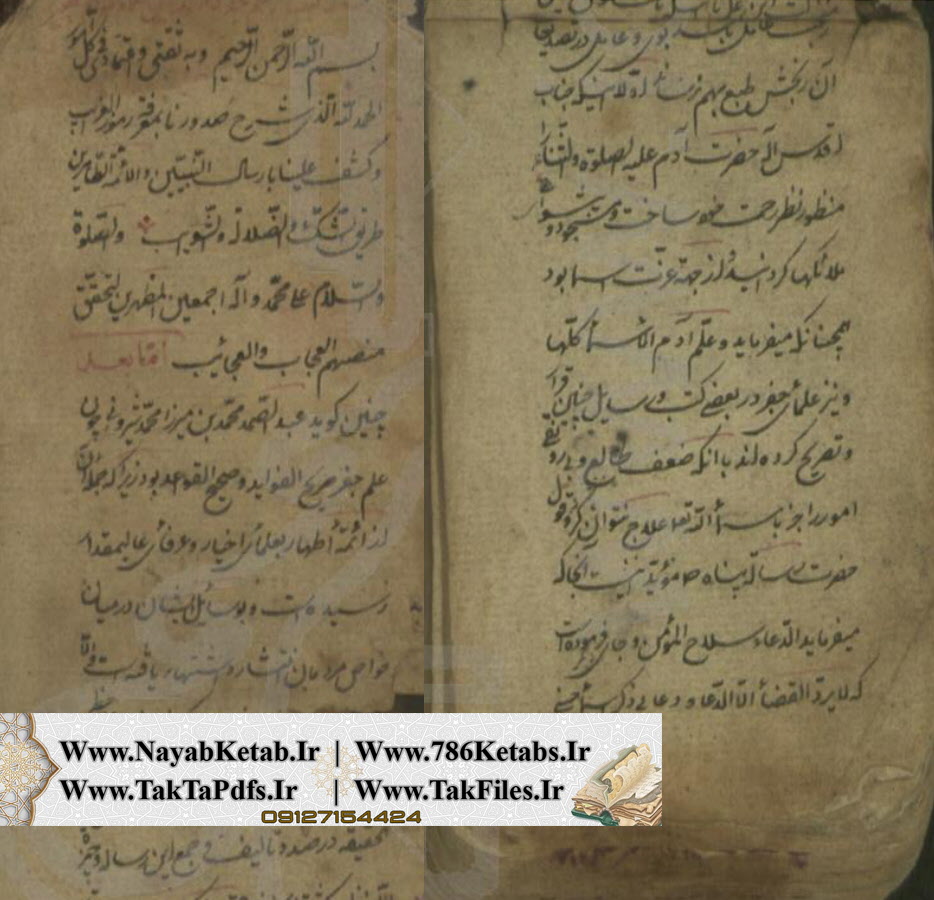 بسم الله الرحمن الرحیم وبه ثقتی و اعتمادی فی کل
الحمد لله الذی شرح صدورنا بمعرفة رموز الغرایب
وکشف علینا بارسال النبیین والائمة الطاهرین
طریق التشکک والضلالة والثواب والصلوة
والسلام علی محمد وآله اجمعین المظهرین لتحقق
منصبهم العجاب والعجائب اما بعد
چنین کوید عبد الصمد محمد بن میرزا محمد شروانی چون
علم جفر صریح الفواید و صحیح القواعد بود زیرا که
از ائمهٔ اطهار بعلمای اخیار و عرفای عالیمقدار
رسیده است و بوسایل ایشان در میان
خواص مردمان انتشار و اشتهار یافته است والا
الحقیقه در صدد تألیف و جمع این رساله وجیزه
آن رنجش طبع بهم نرساند اولا اینکه جناب
اقدس اله حضرت آدم علیه الصلوة والثناء را
منظور نظر رحمت خود ساخت و مسجود
ملائکها کردانید از جهة عزت اسما بود
همچنانکه میفرماید وعلم آدم الاسماء کلها
و نیز علمای جفر در بعضی کتب و رسایل چنین
و تصریح کرده اند بآنکه ضعف طالع و بی رونقی
امور را جز باسماء الله تعالی علاج نتوان کرد و قول
حضرت رسالت پناه ص مؤید اینست آنجا که
میفرماید الدعاء سلاح المؤمن و جای فرموده است
که لا یرد القضاء الا الدعا و دعا بی ذکر اسماء حسنی
Www.NayabKetab.Ir | Www.786Ketabs.Ir
Www.TakTaPdfs.Ir | Www.TakFiles.Ir
09127154424